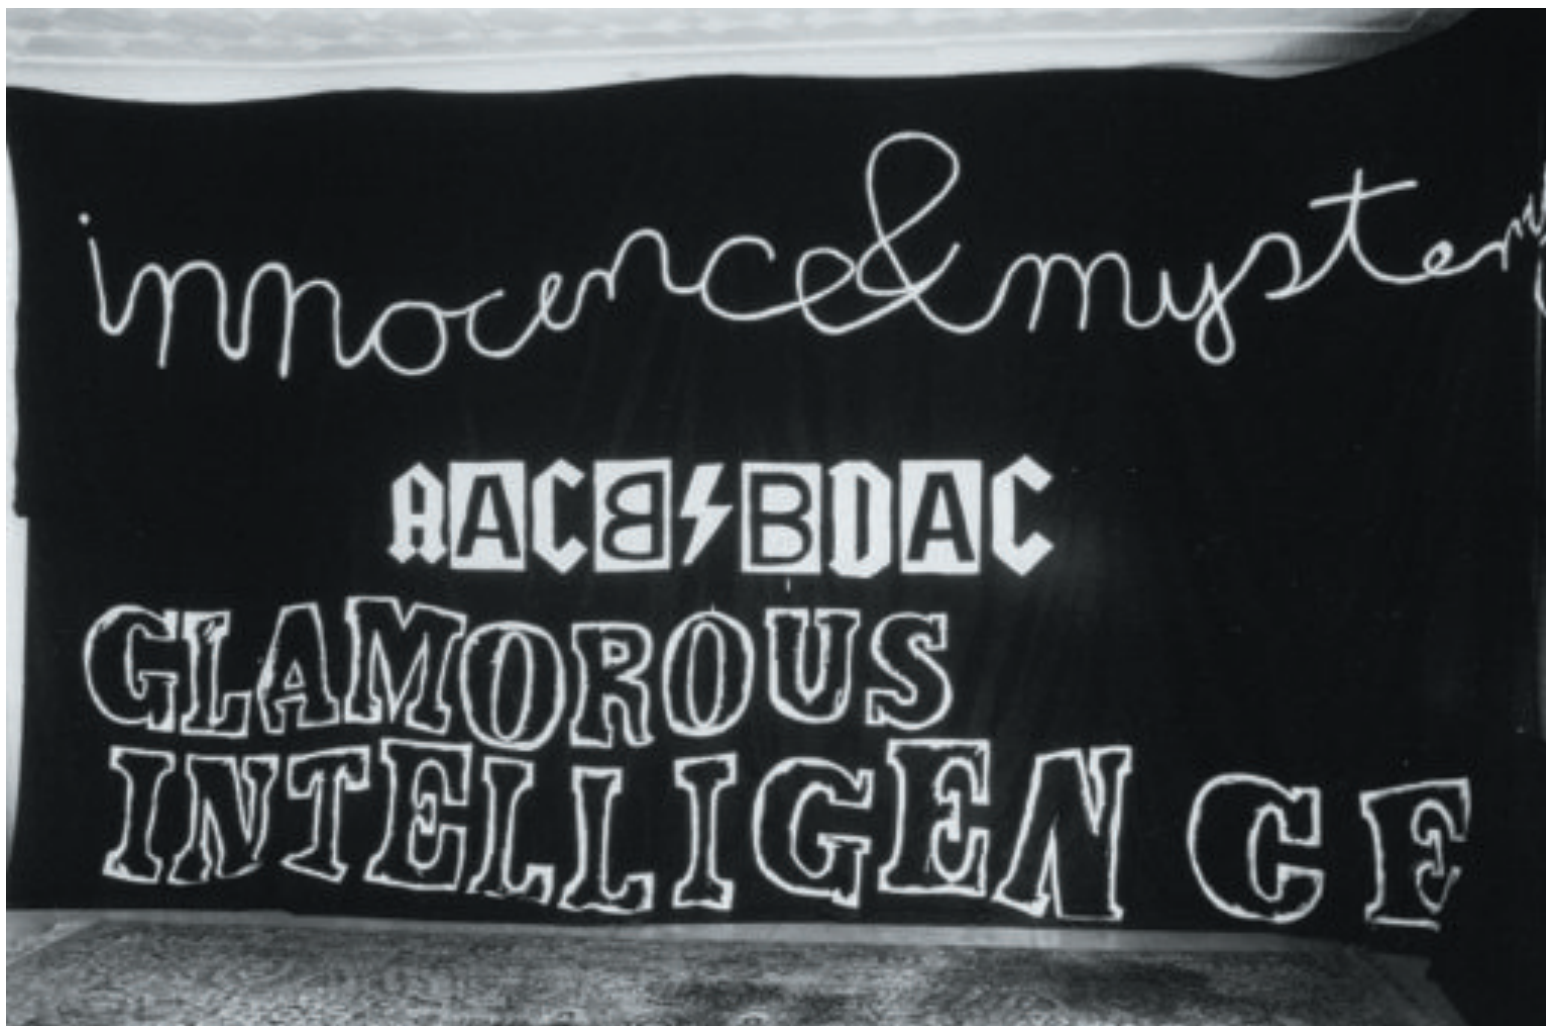 innocence&mystery
AACB⚡BDAC
GLAMOROUS
INTELLIGENCE